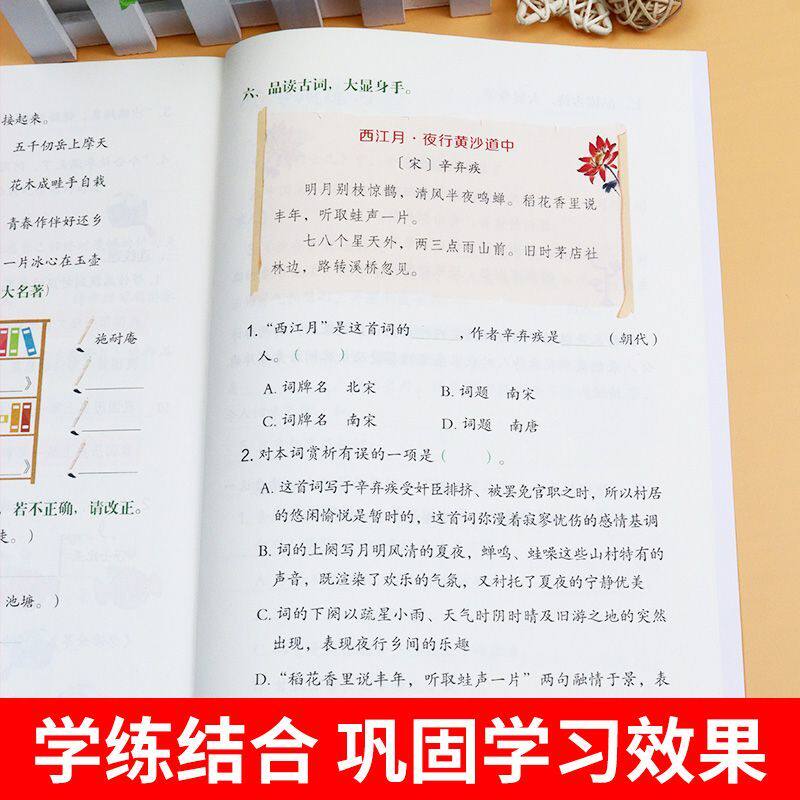 接起来。
五千仞岳上摩天
花木成畦手自栽
青春作伴好还乡
一片冰心在玉壶
大名著）
施耐庵
》
》
，若不正确，请改正。
走。）
池塘。）
六、品读古词，大显身手。
西江月·夜行黄沙道中
〔宋〕辛弃疾
明月别枝惊鹊，清风半夜鸣蝉。稻花香里说
丰年，听取蛙声一片。
七八个星天外，两三点雨山前。旧时茅店社
林边，路转溪桥忽见。
1. “西江月”是这首词的______，作者辛弃疾是______（朝代）
人。（ ）
A. 词牌名 北宋 B. 词题 南宋
C. 词牌名 南宋 D. 词题 南唐
2. 对本词赏析有误的一项是（ ）。
A. 这首词写于辛弃疾受奸臣排挤、被罢免官职之时，所以村居
的悠闲愉悦是暂时的，这首词弥漫着寂寥忧伤的感情基调
B. 词的上阕写月明风清的夏夜，蝉鸣、蛙噪这些山村特有的
声音，既渲染了欢乐的气氛，又衬托了夏夜的宁静优美
C. 词的下阕以疏星小雨、天气时阴时晴及旧游之地的突然
出现，表现夜行乡间的乐趣
D. “稻花香里说丰年，听取蛙声一片”两句融情于景，表
学练结合 巩固学习效果